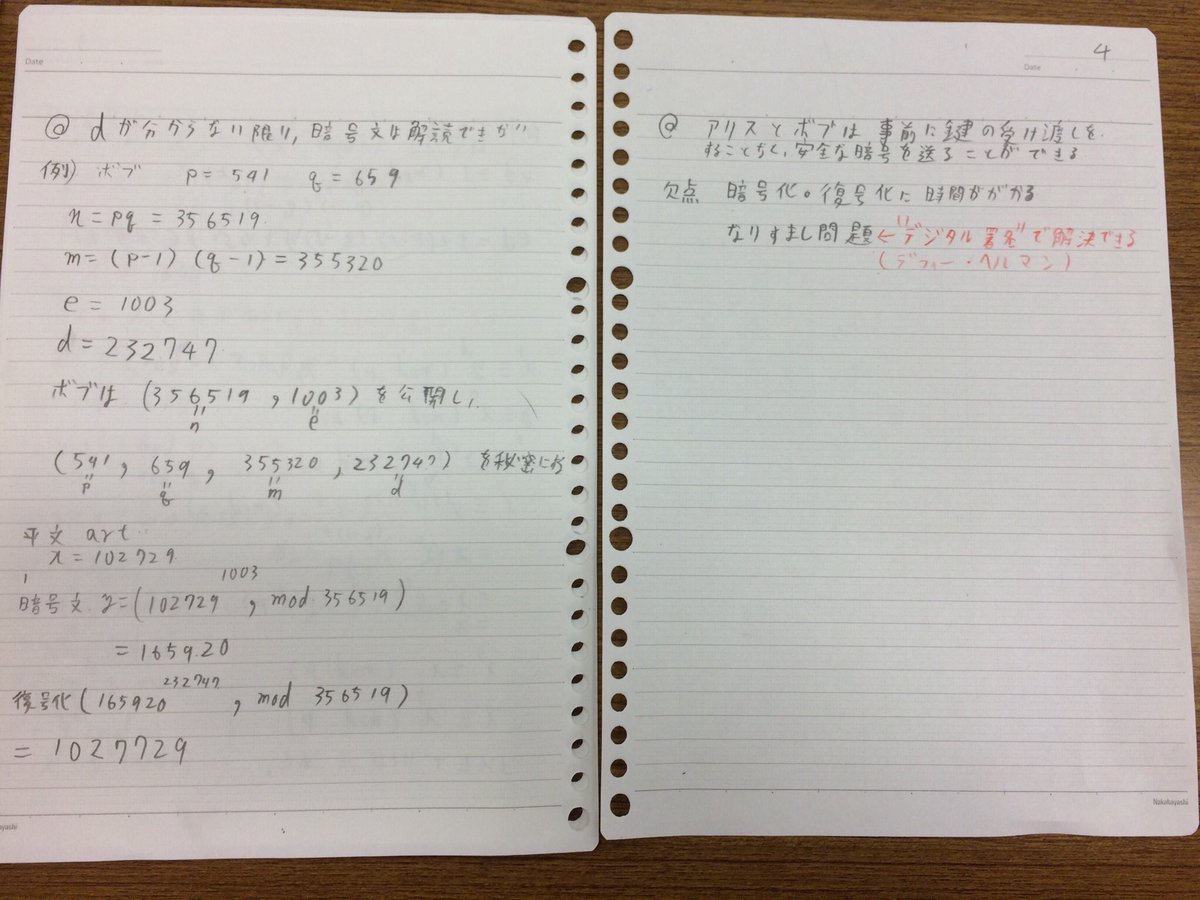 Date
@ dが分からない限り,暗号文は解読できない
例) ボブ p = 541 q = 659
n = pq = 356519
m = (p-1) (q-1) = 355320
e = 1003
d = 232747
ボブは (356519 , 1003) を公開し,
n e
(541 , 659 , 355320 , 232747) を秘密にお
p q m d
平文 art
x = 102729
暗号文 y = (102729^1003 , mod 356519)
= 165920
復号化 (165920^232747 , mod 356519)
= 1027729
4
Date
@ アリスとボブは事前に鍵の受け渡しを
することなく,安全な暗号を送ることができる
欠点 暗号化。復号化に時間ががかる
なりすまし問題 ← "デジタル署名"で解決できる
(デフィー・ヘルマン)
Nakabayashi